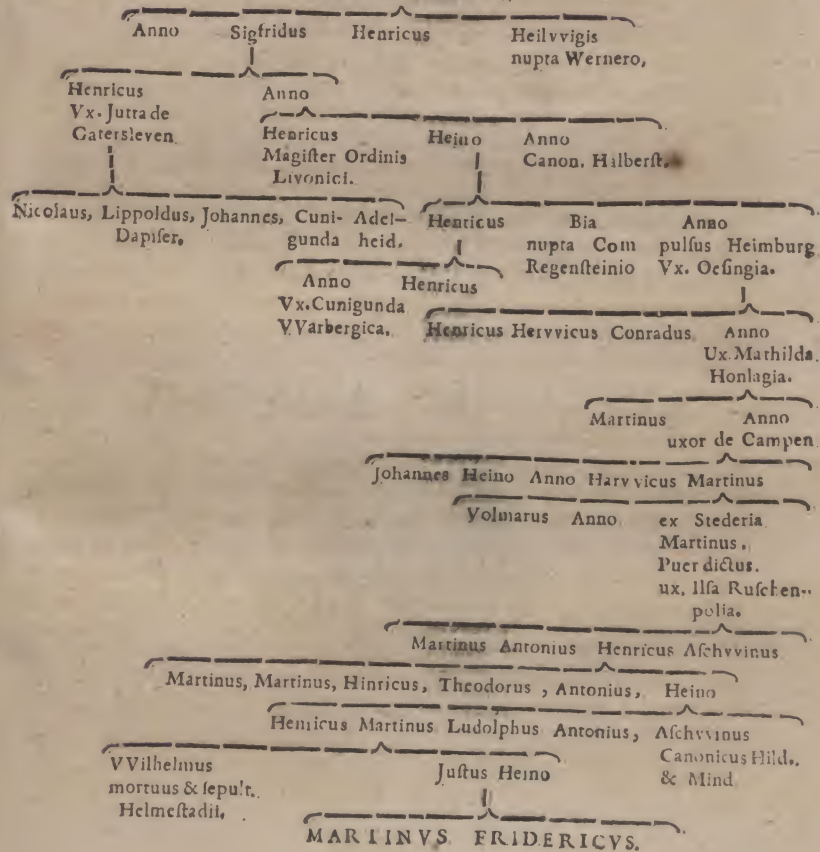 Anno Sigfridus Henricus Heilvvigis
nupta Wernero,
Henricus Anno
Vx. Jutta de
Gatersleven.
Henricus Heino Anno
Magiſter Ordinis Canon. Hilberſt.
Livonici.
Nicolaus, Lippoldus, Johannes, Cuni- Adel-
Dapifer. gunda heid.
Henricus Bia Anno
nupta Com pulſus Heimburg
Regenſteinio Vx. Oeſingia.
Anno Henricus
Vx. Cunigunda
VVarbergica.
Henricus Hervvicus Conradus Anno
Ux. Mathilda
Honlagia.
Martinus Anno
uxor de Campen
Johannes Heino Anno Harvvicus Martinus
Volmarus Anno ex Stederia
Martinus,
Puer dictus.
ux. Ilſa Ruſchen-
polia.
Martinus Antonius Henricus Aſchvvinus
Martinus, Martinus, Hinricus, Theodorus, Antonius, Heino
Henricus Martinus Ludolphus Antonius, Aſchvvinus
Canonicus Hild.
& Mind
VVilhelmus Juſtus Heino
mortuus & ſepult.
Helmeſtadii.
MARTINVS FRIDERICVS.